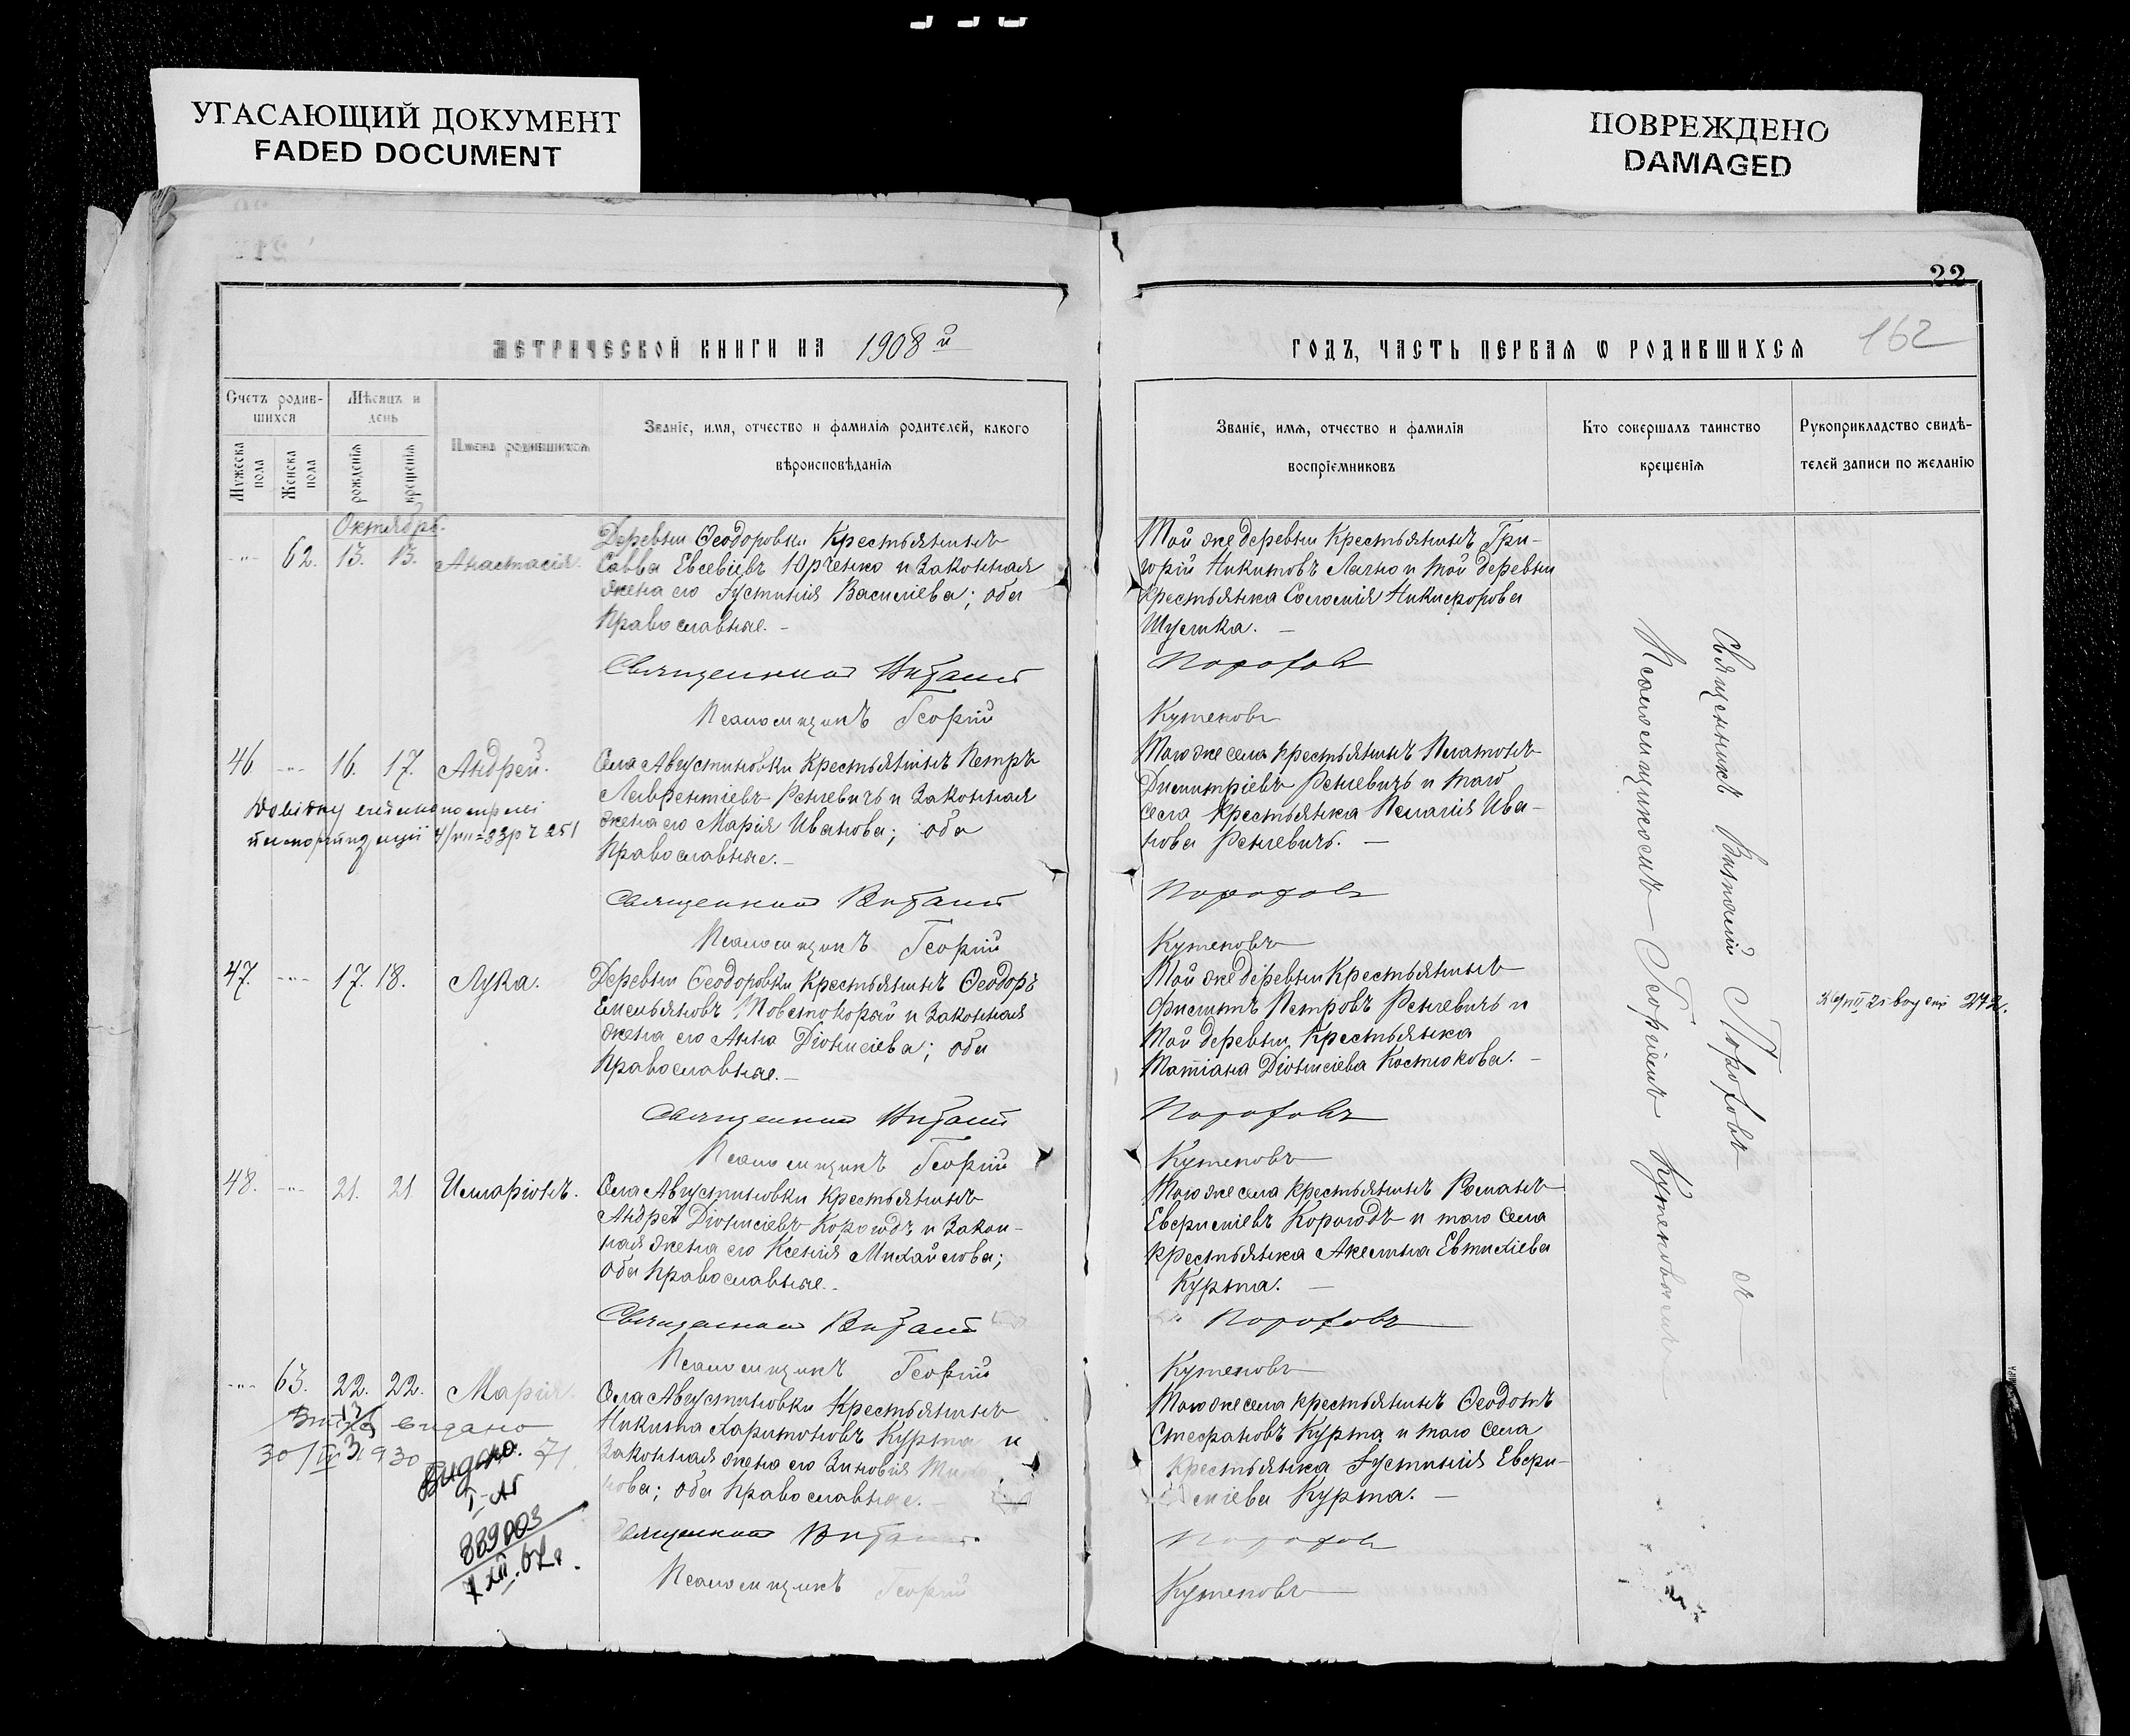 УГАСАЮЩИЙ ДОКУМЕНТ
FADED DOCUMENT
ПОВРЕЖДЕНО
DAMAGED
22
162
МЕТРИЧЕСКОЙ КНИГИ НА 1908й
ГОДЪ, ЧАСТЬ ПЕРВАЯ О РОДИВШИХСЯ
Счетъ родив-
шихся
Мужеска пола
Женска пола
Мѣсяцъ и
день
рожденія
крещенія
Имена родившихся
Званіе, имя, отчество и фамилія родителей, какого
вѣроисповѣданія
Званіе, имя, отчество и фамилія
воспріемниковъ
Кто совершалъ таинство
крещенія
Рукоприкладство свидѣ-
телей записи по желанію
Октябрь.
-"- 62. 13. 13. Анастасія.
Деревни Ѳеодоровки Крестьянинъ
Савва Евсевіевъ Юрченко и законная
жена его Іустинія Василіева; оба
Православные. -
Священникъ Виталій
Псаломщикъ Георгій
Той же деревни Крестьянинъ Гри-
горій Никитовъ Лячно и той деревни
крестьянка Соломія Никифорова
Шулика. -
Пороховъ
Кутеповъ
46 -"- 16. 17. Андрей.
Села Августиновки Крестьянинъ Петръ
Лаврентіевъ Реплевичъ и законная
жена его Марія Иванова; оба
Православные. -
Священникъ Виталій
Псаломщикъ Георгій
Того же села крестьянинъ Платонъ
Димитріевъ Реплевичъ и того
села крестьянка Пелагія Ива-
нова Реплевичъ. -
Пороховъ
Кутеповъ
47. -"- 17. 18. Лука.
Деревни Ѳеодоровки Крестьянинъ Ѳеодоръ
Емельяновъ Повстокорый и законная
жена его Анна Діонисіева; оба
Православные. -
Священникъ Виталій
Псаломщикъ Георгій
Той же деревни Крестьянинъ
Филиппъ Петровъ Реплевичъ и
той деревни крестьянка
Татіана Діонисіева Костюкова. -
Пороховъ
Кутеповъ
272.
48. -"- 21. 21 Илларіонъ.
Села Августиновки крестьянинъ
Андрей Діонисіевъ Корогодъ и закон-
ная жена его Ксенія Михайлова;
оба православные. -
Священникъ Виталій
Псаломщикъ Георгій
Того же села крестьянинъ Романъ
Евфиміевъ Корогодъ и того села
крестьянка Акелина Евтихіева
Курта. -
Пороховъ
Кутеповъ
-"- 63. 22. 22. Марія.
Села Августиновки Крестьянинъ
Никита Харитоновъ Курта и
законная жена его Зиновія
нова; оба православные. -
Священникъ Виталій
Псаломщикъ Георгій
Того же села крестьянинъ Ѳеодотъ
Стефановъ Курта и того села
крестьянка Іустинія Евфи-
міева Курта. -
Пороховъ
Кутеповъ
видано
30/IV 1930 71.
Видано.
I-АГ
889003
7 XII.67г.
Священникъ Виталій Пороховъ съ
Псаломщикомъ Георгіемъ Кутеповымъ